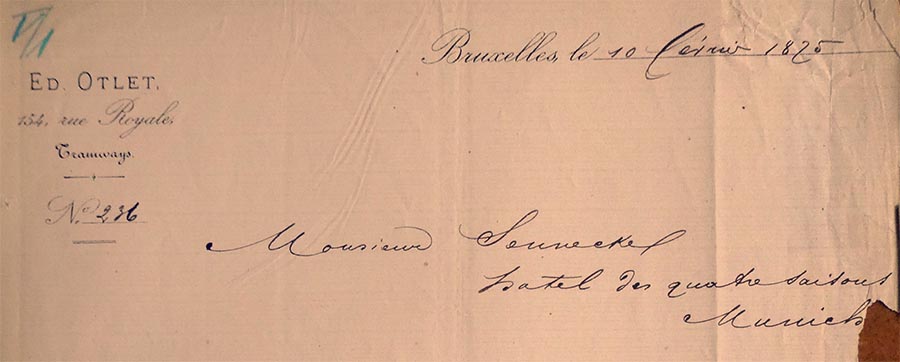 V/1
Bruxelles, le 10 février 1875
ED. OTLET,
154, rue Royale,
Tramways.
No 236
Monsieur Senneckel
hotel des quatre saisons
Munich